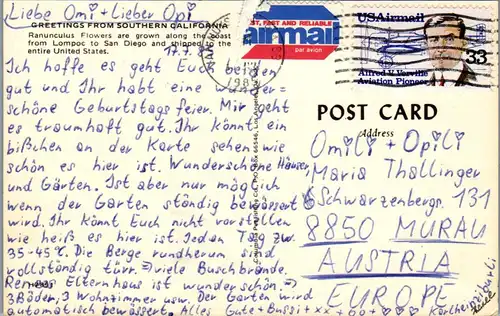 Liebe Omi + Lieber Opi
GREETINGS FROM SOUTHERN CALIFORNIA
Ranunculus Flowers are grown along the coast
from Lompoc to San Diego and shipped to the
entire United States.
17.7.85
Ich hoffe es geht Euch beiden
gut und Ihr habt eine wunder=
schöne Geburtstagsfeier. Mir geht
es traumhaft gut. Ihr könnt ein
bißchen an der Karte sehen wie
schön es hier ist. Wunderschöne Häuser
und Gärten. Ist aber nur möglich
wenn der Garten ständig bewässert
wird. Ihr könnt Euch nicht vorstellen
wie heiß es hier ist. Jeden Tag zw.
35-45°C. Die Berge rundherum sind
vollständig dürr. => viele Buschbrände.
Elternhaus ist wunderschön. =>
3 Bäder, 3 Wohnzimmer usw. Der Garten wird
automatisch bewässert. Alles Gute + Bussi
Karlheinz
FAST, FAST AND RELIABLE
airmail
par avion
USAirmail
33
Alfred V. Verville
Aviation Pioneer
POST CARD
Address
Omili + Opili
Maria Thallinger
Schwarzenbergs. 131
8850 MURAU
AUSTRIA
EUROPE